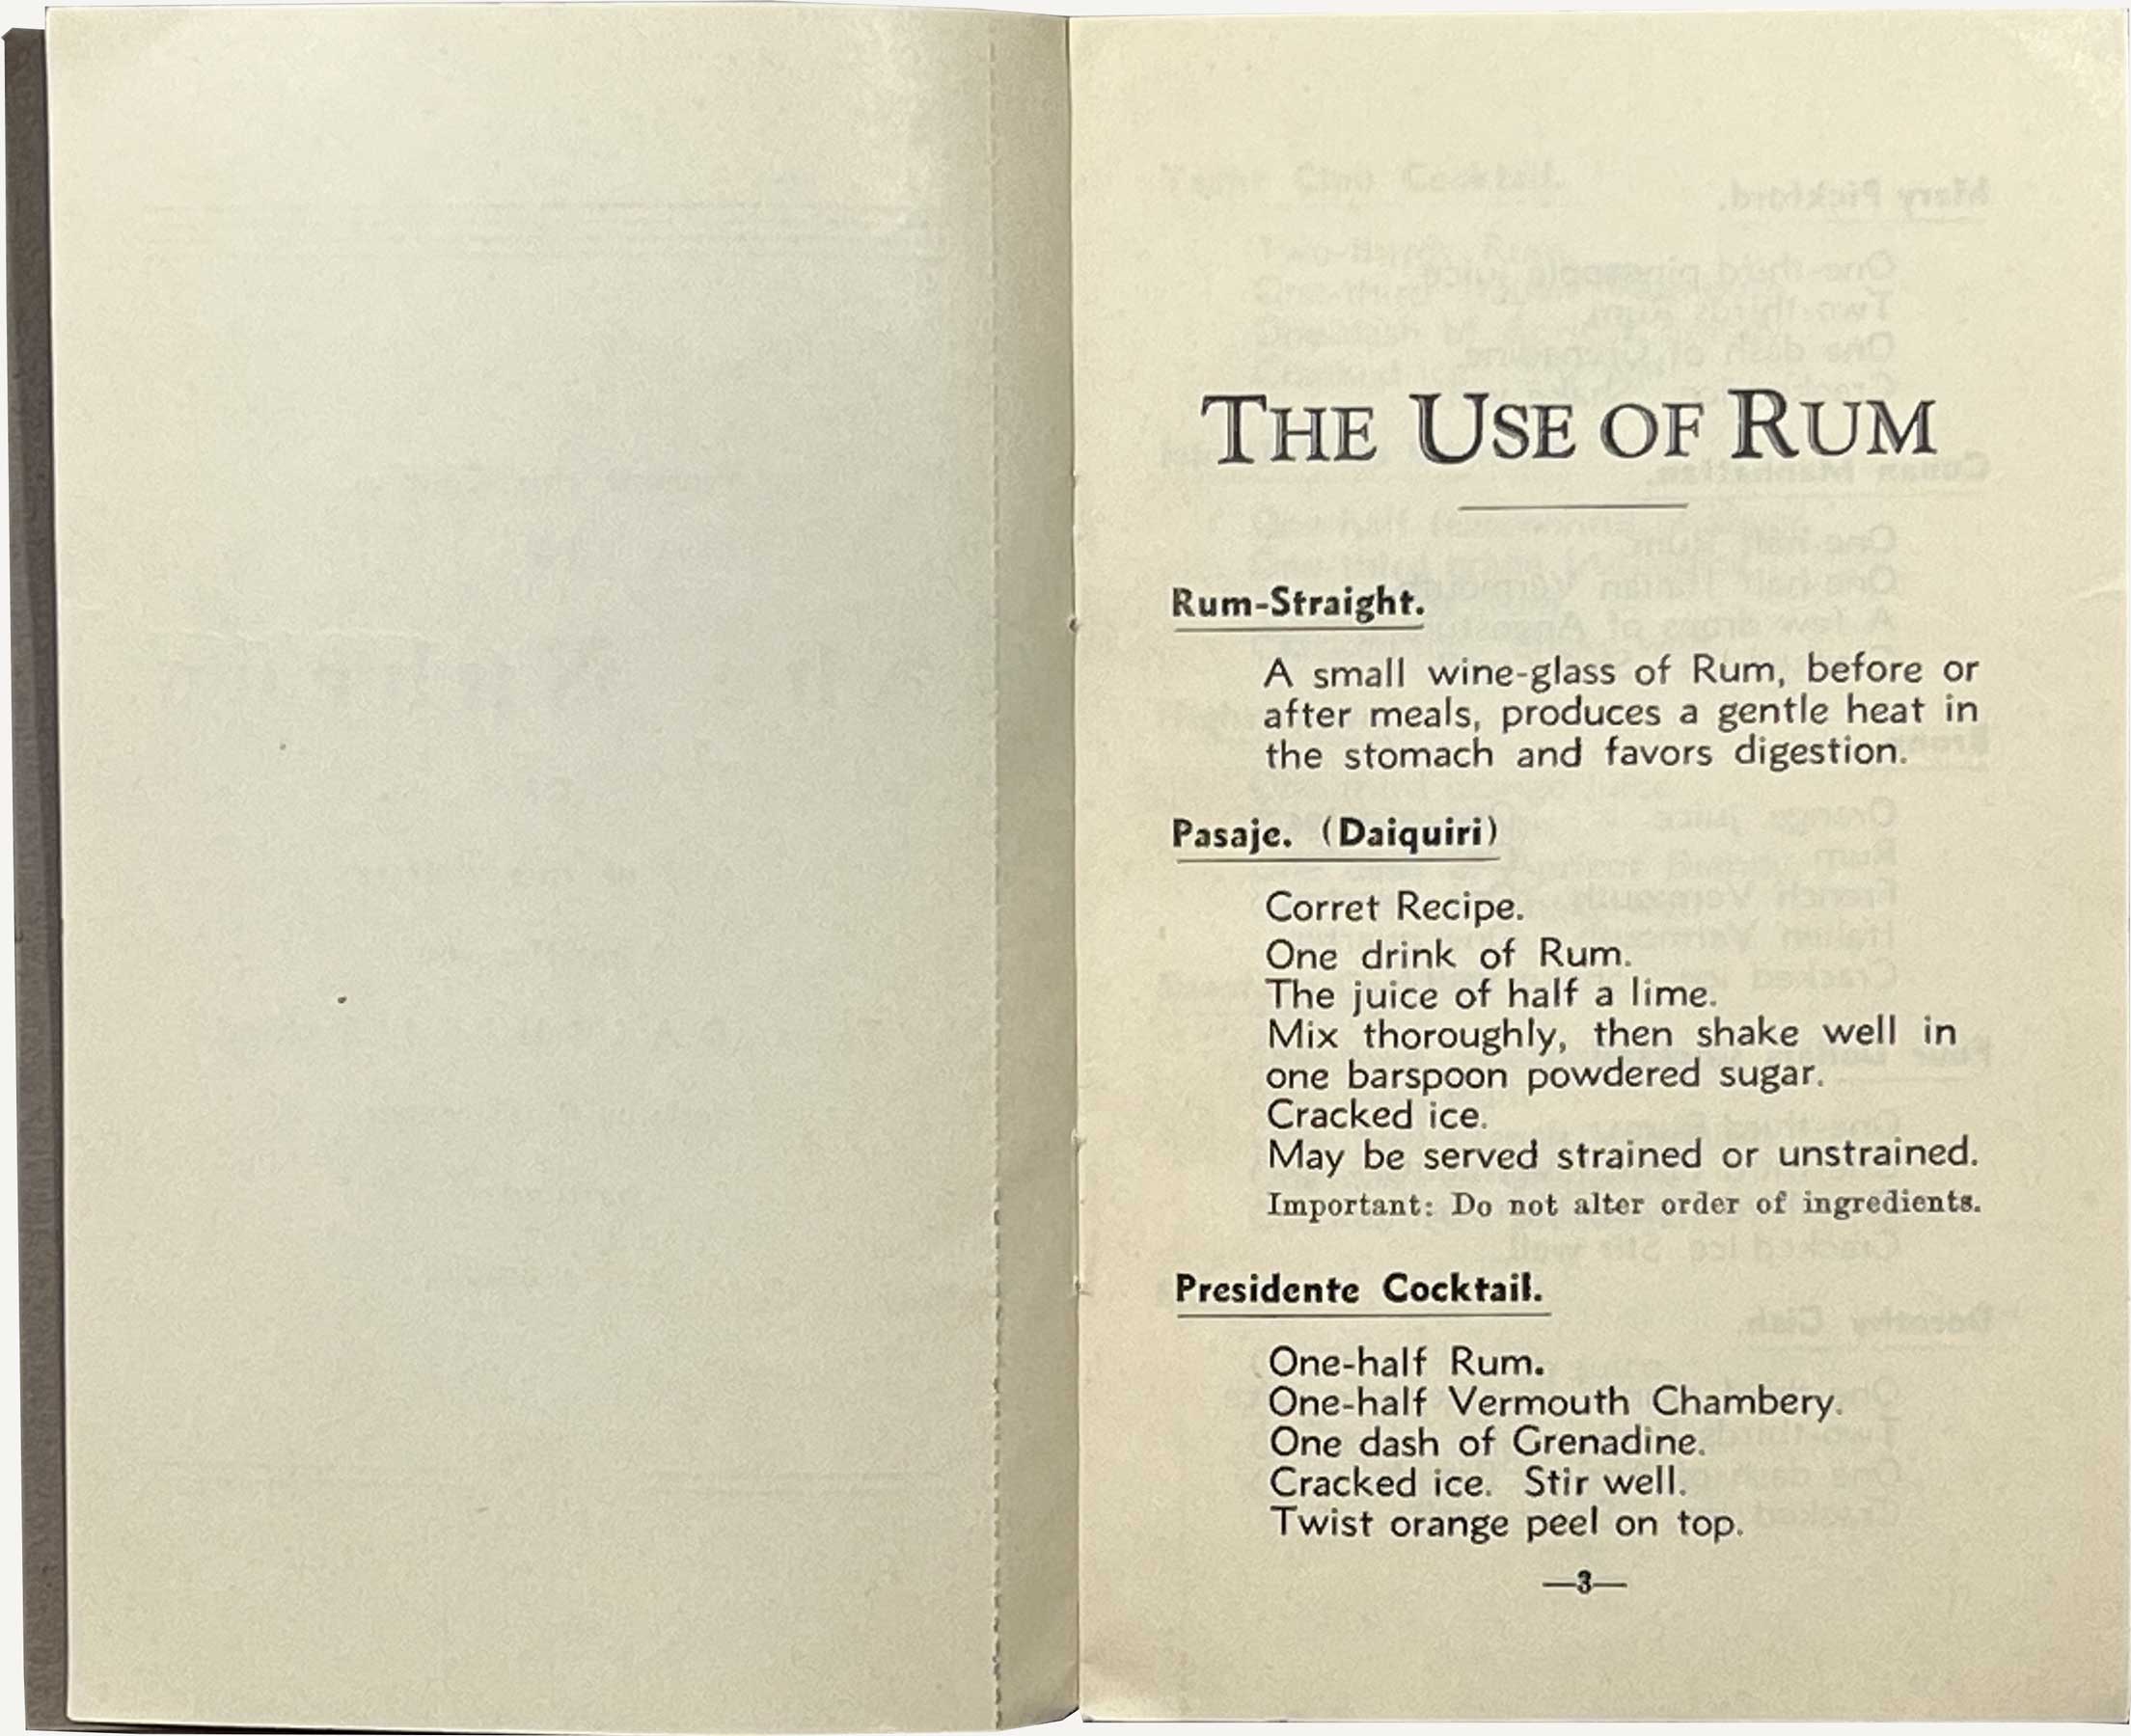 THE USE OF RUM
Rum-Straight.
A small wine-glass of Rum, before or
after meals, produces a gentle heat in
the stomach and favors digestion.
Pasaje. (Daiquiri)
Corret Recipe.
One drink of Rum.
The juice of half a lime.
Mix thoroughly, then shake well in
one barspoon powdered sugar.
Cracked ice.
May be served strained or unstrained.
Important: Do not alter order of ingredients.
Presidente Cocktail.
One-half Rum.
One-half Vermouth Chambery.
One dash of Grenadine.
Cracked ice. Stir well.
Twist orange peel on top.
—3—